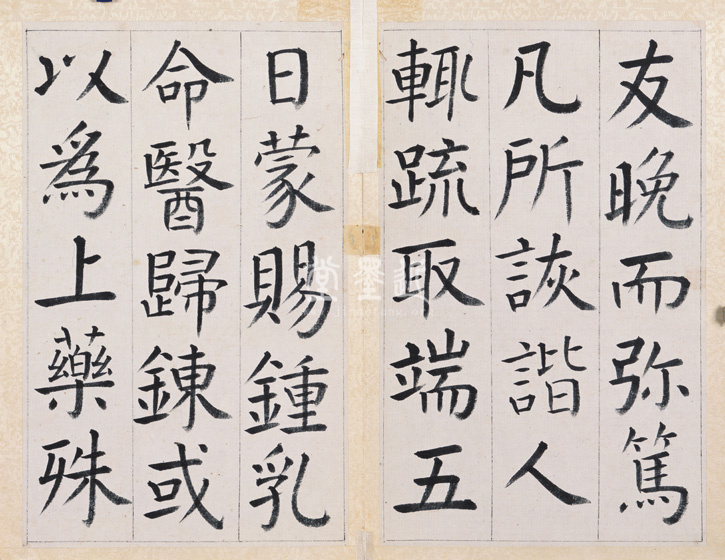 友晚而弥篤
凡所詼諧人
輙疏取端五
日蒙賜鍾乳
命醫歸鍊或
以爲上藥殊